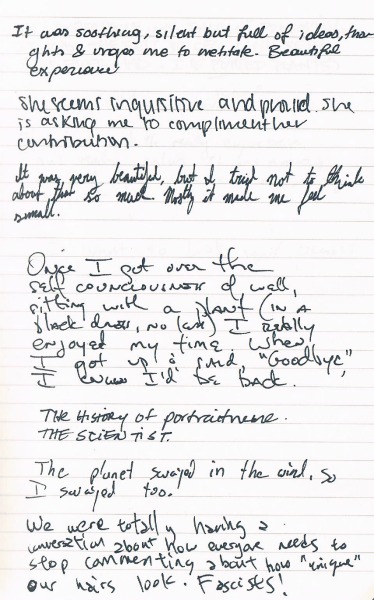 It was soothing, silent but full of ideas, thou
ghts & urges me to meditate. Beautiful
experience
She seems inquisitive and proud. She
is asking me to compliment her
contribution.
It was very beautiful, but I tried not to think
about that so much. Mostly it made me feel
small.
Once I got over the
self conciousness of well,
sitting with a plant (in a
black dress, no less) I really
enjoyed my time. When
I got up & said, "Goodbye",
I knew I'd be back.
The History of portraiture.
THE SCIENTIST.
The planet swayed in the wind, so
I swayed too.
We were totally having a
conversation about how everyone needs to
stop commenting about how "unique"
our hairs look. Fascists!